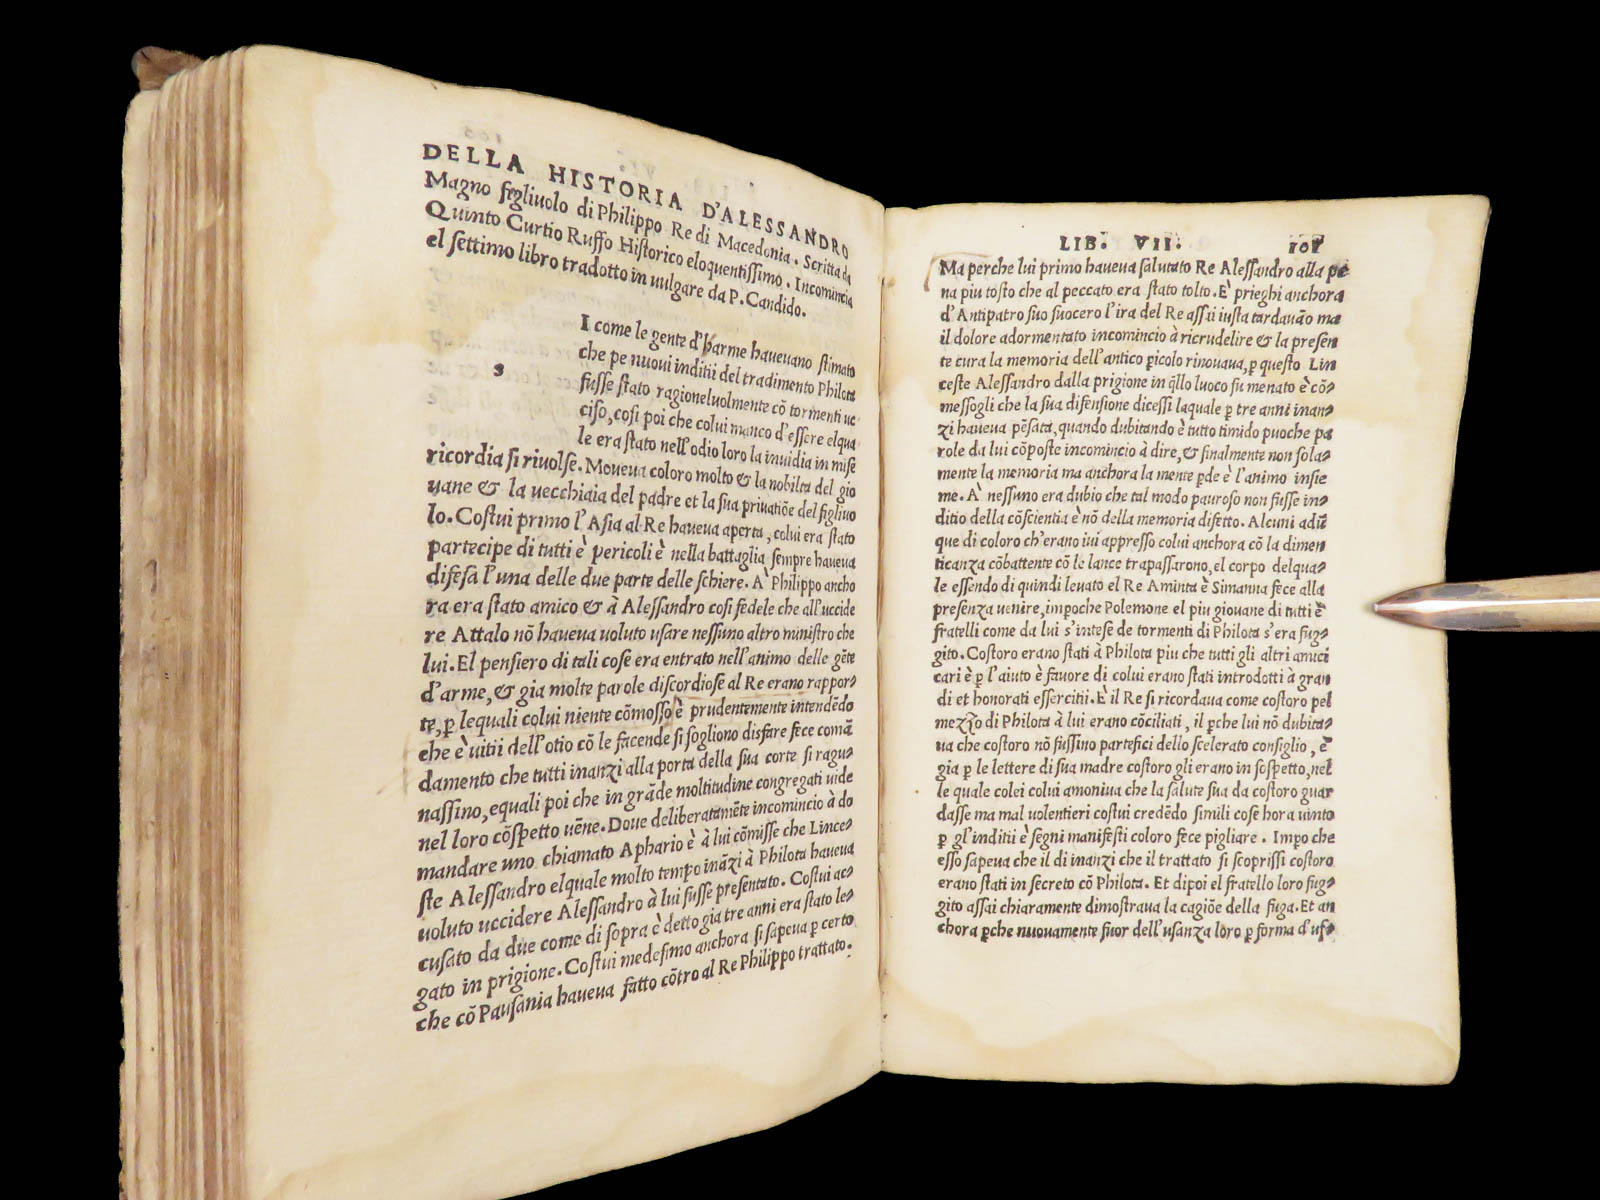 DELLA HISTORIA D'ALESSANDRO
Magno figliuolo di Philippo Re di Macedonia. Scritta da
Quinto Curtio Ruffo Historico eloquentissimo. Incomincia
el settimo libro tradotto in vulgare da P. Candido.
s
I come le gente d'harme haueuano stimato
che pe nuoui inditii del tradimento Philota
fusse stato ragioneluolmente cō tormenti uc
ciso, cosi poi che colui manco d'essere elqua
le era stato nell'odio loro la inuidia in mise
ricordia si riuolse. Moueua coloro molto & la nobilta del gio
uane & la uecchiaia del padre et la sua priuatiōe del figliuo
lo. Costui primo l'Asia al Re haueua aperta, colui era stato
partecipe di tutti è pericoli è nella battaglia sempre haueua
difesa l'una delle due parte delle schiere. A' Philippo ancho
ra era stato amico & à Alessandro cosi fedele che all'uccide
re Attalo nō haueua uoluto usare nessuno altro ministro che
lui. El pensiero di tali cose era entrato nell'animo delle gēte
d'arme, & gia molte parole discordiose al Re erano rappor-
te, ꝑ lequali colui niente cōmosso è prudentemente intendēdo
che è uitii dell'otio cō le facende si sogliono disfare fece comā
damento che tutti inanzi alla porta della sua corte si ragu-
nassino, equali poi che in grāde moltitudine congregati uide
nel loro cōspetto uēne. Doue deliberatamēte incomincio à do
mandare uno chiamato Aphario è à lui cōmisse che Lince-
ste Alessandro elquale molto tempo ināzi à Philota haueua
uoluto uccidere Alessandro à lui fusse presentato. Costui ac-
cusato da due come di sopra è detto gia tre anni era stato le-
gato in prigione. Costui medesimo anchora si sapeua ꝑ certo
che cō Pausania haueua fatto cōtro al Re Philippo trattato.
LIB. VII. 101
Ma perche lui primo haueua salutato Re Alessandro alla pe
na piu tosto che al peccato era stato tolto. E' prieghi anchora
d'Antipatro suo suocero l'ira del Re assai iusta tardauāo ma
il dolore adormentato incomincio à ricrudelire & la presen
te cura la memoria dell'antico ꝑicolo rinouaua, ꝑ questo Lin
ceste Alessandro dalla prigione in q̃llo luoco fu menato è cō-
messogli che la sua difensione dicessi laquale ꝑ tre anni inan-
zi haueua pēsata, quando dubitando è tutto timido puoche pa
role da lui cōposte incomincio à dire, & finalmente non sola-
mente la memoria ma anchora la mente ꝑde è l'animo insie
me. A' nessuno era dubio che tal modo pauroso non fusse in-
ditio della cōscientia è nō della memoria difetto. Alcuni adū
que di coloro ch'erano iui appresso colui anchora cō la dimen
ticanza cōbattente cō le lance trapassarono, el corpo delqua-
le essendo di quindi leuato el Re Aminta è Simanna fece alla
presenza uenire, impoche Polemone el piu giouane di tutti è
fratelli come da lui s'intese de tormenti di Philota s'era fug-
gito. Costoro erano stati à Philota piu che tutti gli altri amici
cari è ꝑ l'aiuto è fauore di colui erano stati introdotti à gran
di et honorati esserciti. E' il Re si ricordaua come costoro pel
mezzo di Philota à lui erano cōciliati, il ꝑche lui nō dubita-
ua che costoro nō fussino partefici dello scelerato consiglio, è
gia ꝑ le lettere di sua madre costoro gli erano in sospetto, nel
le quale colei colui amoniua che la salute sua da costoro guar
dasse ma mal uolentieri costui credēdo simili cose hora uinto
ꝑ gl'inditii è segni manifesti coloro fece pigliare. Impo che
esso sapeua che il di inanzi che il trattato si scoprissi costoro
erano stati in secreto cō Philota. Et dipoi el fratello loro fug-
gito assai chiaramente dimostraua la cagiōe della fuga. Et an
chora ꝑche nuouamente fuor dell'usanza loro ꝑ forma d'uf-